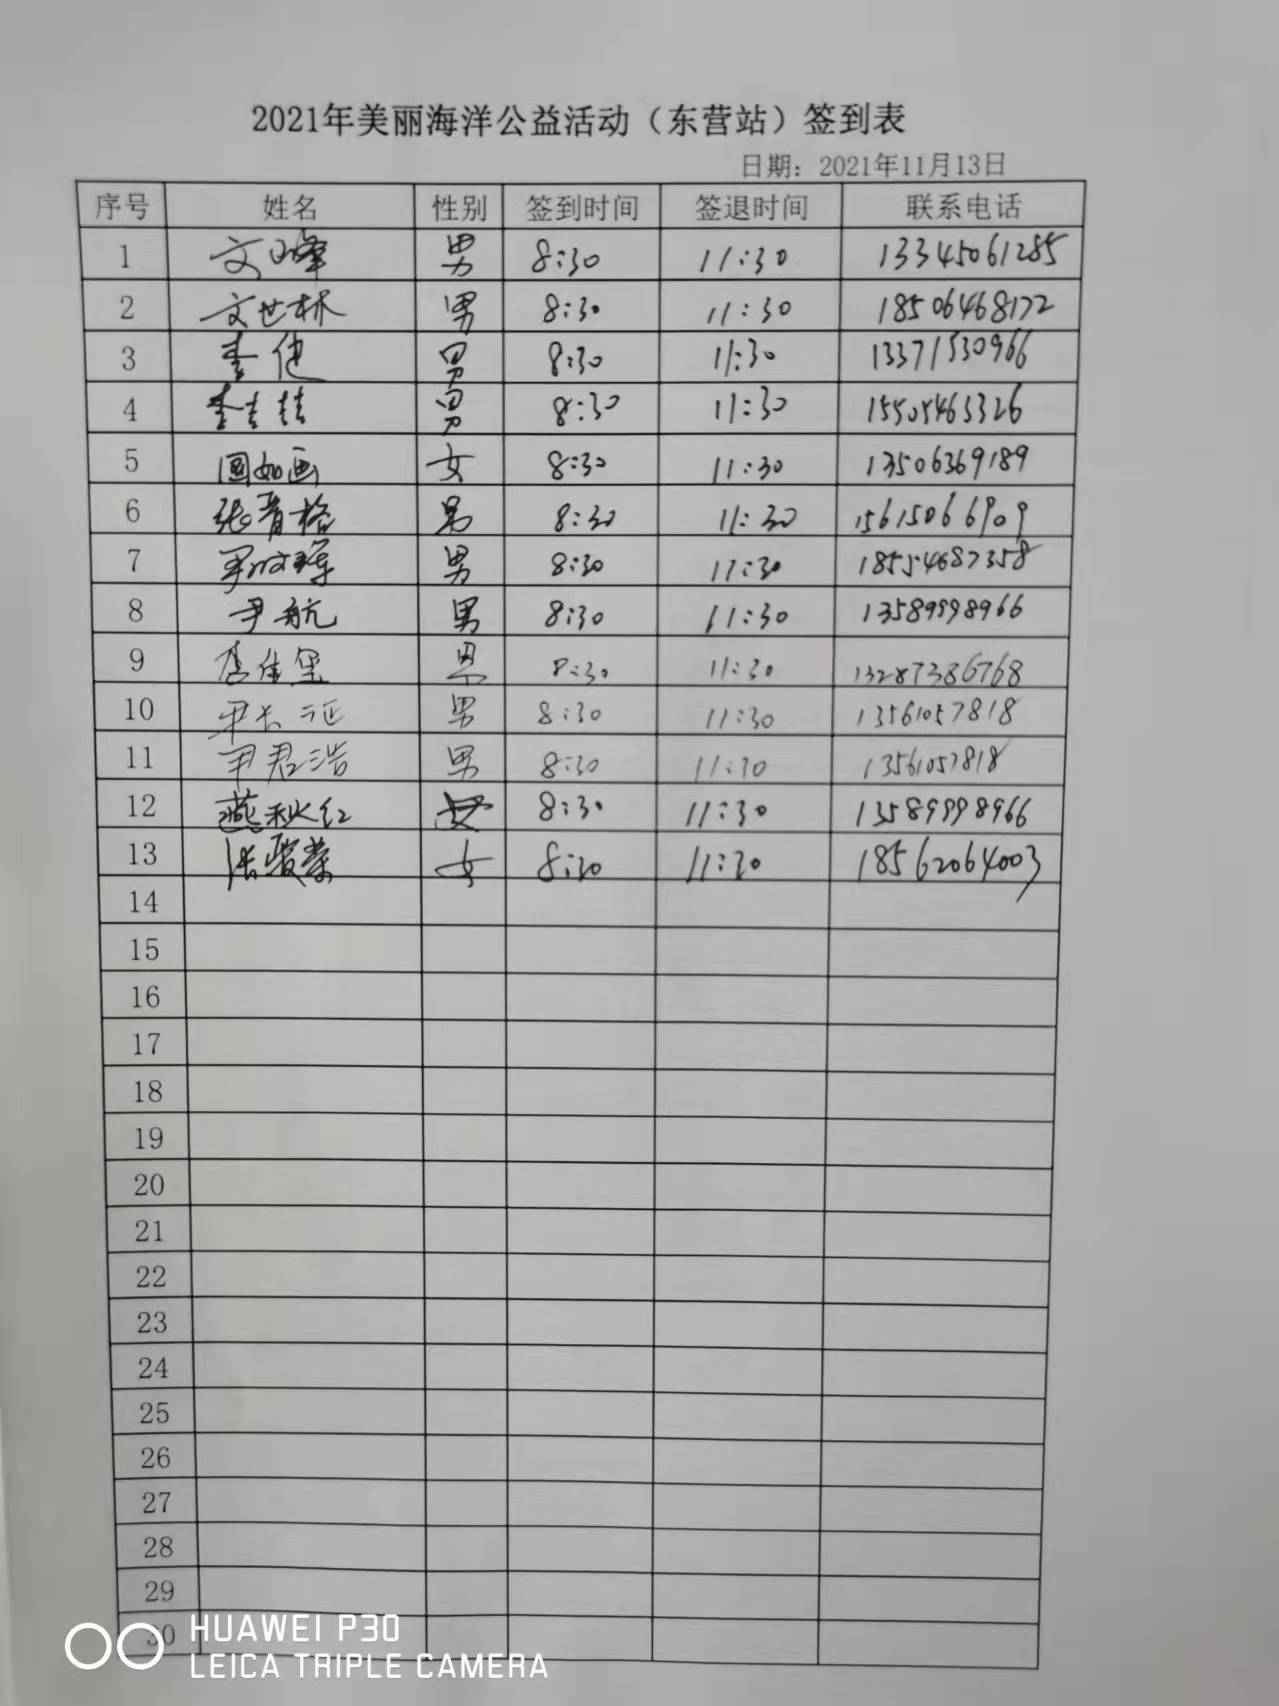 2021年美丽海洋公益活动（东营站）签到表
日期：2021年11月13日
序号 姓名 性别 签到时间 签退时间 联系电话
1 文峰 男 8:30 11:30 13345061285
2 文世林 男 8:30 11:30 18506468172
3 李健 男 8:30 11:30 13371530966
4 李吉喆 男 8:30 11:30 15505463326
5 国如画 女 8:30 11:30 13506369189
6 张晋榕 男 8:30 11:30 15615066909
7 男 8:30 11:30 18554687358
8 尹航 男 8:30 11:30 13589998966
9 李佳玺 男 8:30 11:30 13287386768
10 尹长征 男 8:30 11:30 13561057818
11 尹君浩 男 8:30 11:30 13561057818
12 燕秋红 女 8:30 11:30 13589998966
13 女 8:30 11:30 18562064003
14
15
16
17
18
19
20
21
22
23
24
25
26
27
28
29
30
HUAWEI P30
LEICA TRIPLE CAMERA